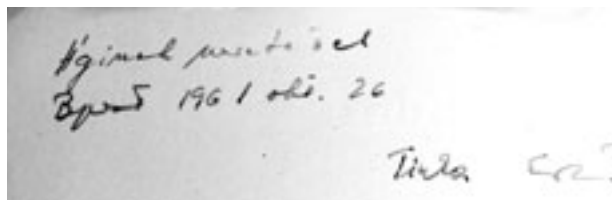 Áginak szeretettel
Bpest 1961 okt. 26
Tinka